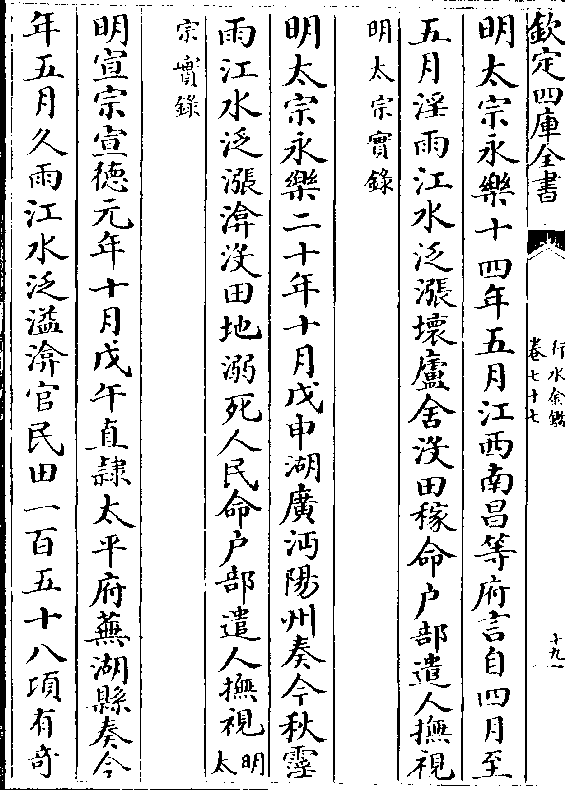 欽定四庫全書
行水金鑑
卷七十七
十九
明太宗永樂十四年五月江西南昌等府言自四月至
五月淫雨江水泛漲壞廬舍沒田稼命户部遣人撫視
明太宗實錄
明太宗永樂二十年十月戊申湖廣沔陽州奏今秋霪
雨江水泛漲渰沒田地溺死人民命户部遣人撫視明太
宗實錄
明宣宗宣德元年十月戊午直隷太平府蕪湖縣奏今
年五月久雨江水泛溢渰官民田一百五十八頃有奇